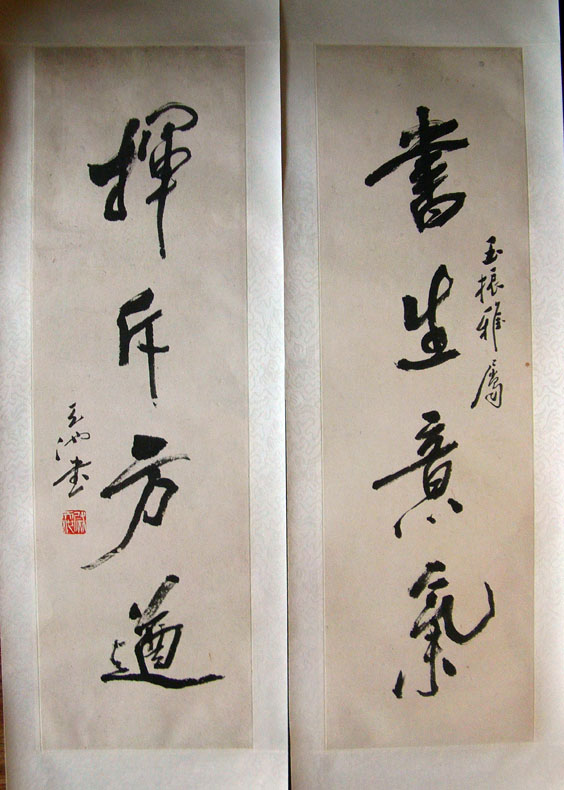 書生意氣
玉振雅屬
揮斥方遒
天池書